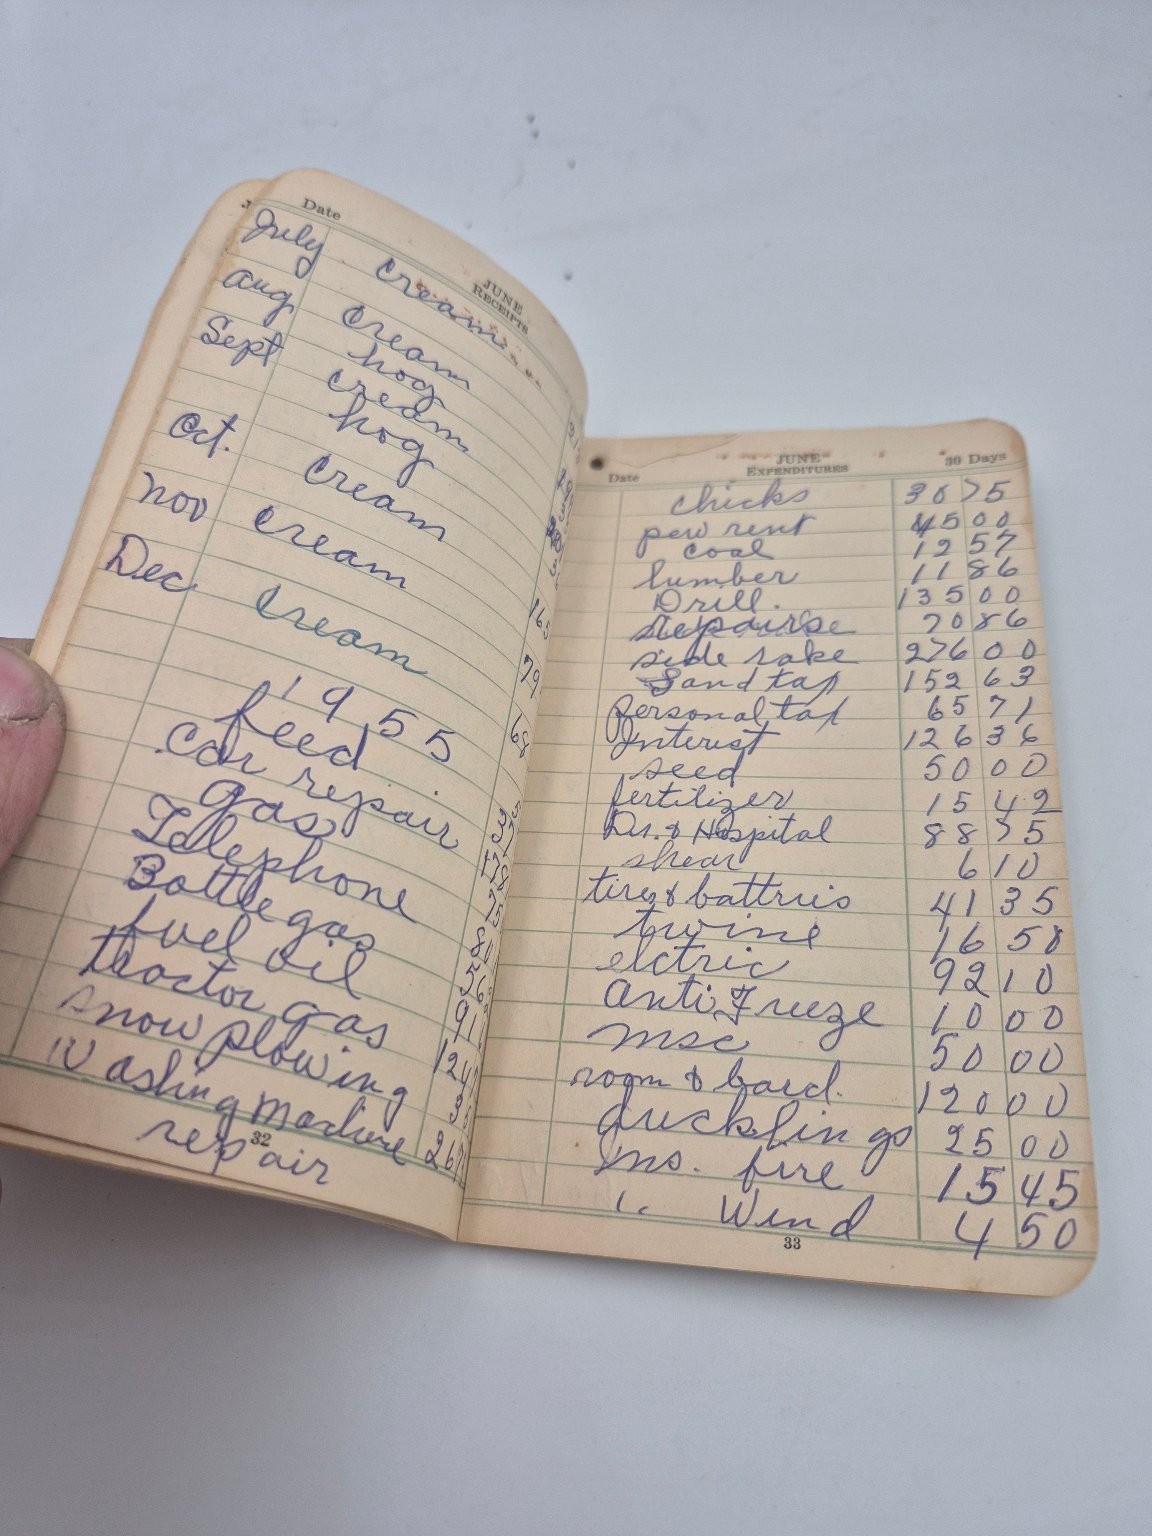 Date
JUNE
RECEIPTS
July cream
Aug cream
hog
Sept cream
hog
Oct. cream
Nov cream 165
Dec cream 79
68
1955
feed
car repair
gas
Telephone 75
Bottle gas
fuel oil 56
tractor gas 91
snow plowing 124
Washing Machine
repair 26
32
Date JUNE 30 Days
EXPENDITURES
chicks 30 75
pew rent 45 00
coal 12 57
lumber 11 86
Drill. 135 00
70 86
side rake 276 00
Sand tax 152 63
Personal tax 65 71
Interest 126 36
seed 50 00
fertilizer 15 42
Dr. & Hospital 88 75
shear 6 10
tires & battris 41 35
twine 16 50
elctric 92 10
Anti Freeze 10 00
msc 50 00
room & bard. 120 00
ducklings 25 00
Ins. fire 15 45
" Wind 4 50
33